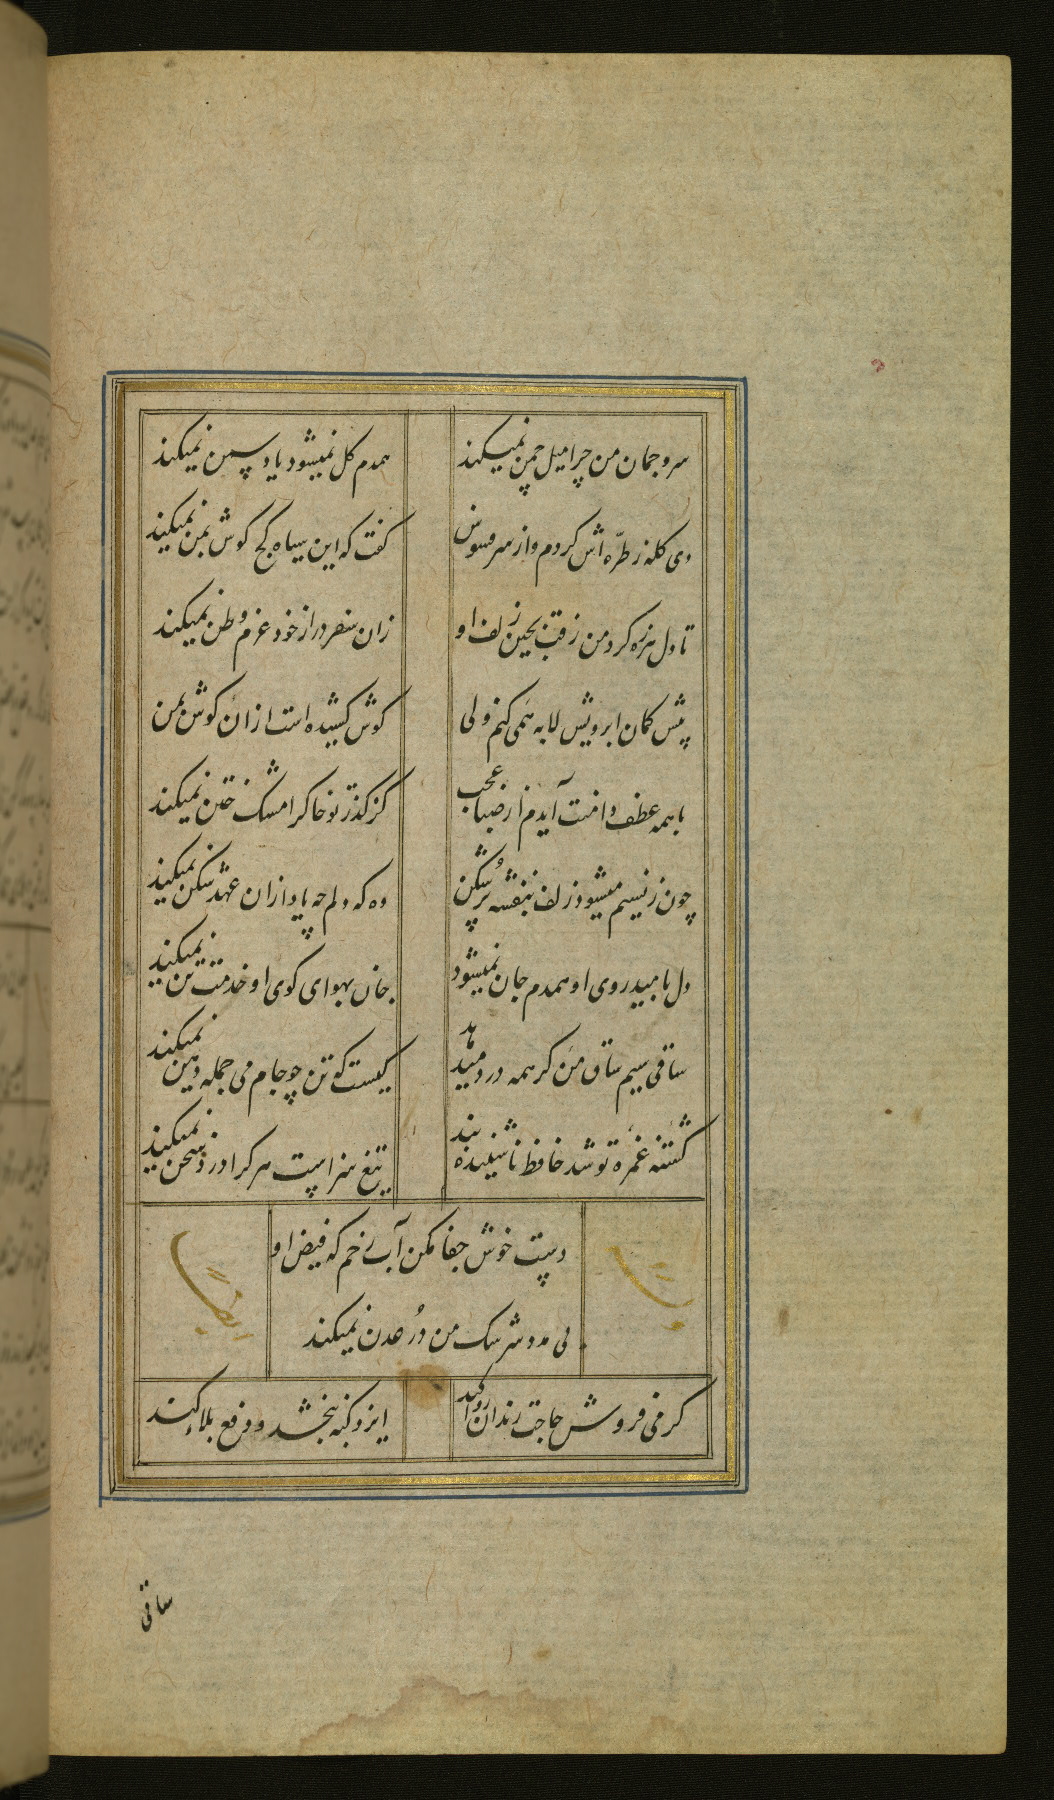 سرو جمان من چرا میل چمن نمیکند
همدم کل نمیشود یاد سمن نمیکند
دی کله ز طرّه اش کردم و از سر فسوس
کفت که این سیاه کج کوش بمن نمیکند
تا دل هرزه کرد من رفت بچین زلف او
زان سفر دراز خود عزم وطن نمیکند
پیش کمان ابرویش لابه همی کنم ولی
کوش کشیده است ازان کوش بمن
با همه عطف دامنت آیدم از صبا عجب
کز کذر تو خاکرا مشک ختن نمیکند
چون ز نسیم میشود زلف بنفشه پُرشکن
وه که دلم چه یاد ازان عهد شکن نمیکند
دل بامید روی او همدم جان نمیشود
جان بهوای کوی او خدمت تن نمیکند
ساقی سیم ساق من کر همه درد میدهد
کیست که تن چو جام می جمله دهن نمیکند
کشته غمزه تو شد حافظ ناشنیده پند
تیغ سزاست هر کرا درد سخن نمیکند
دست خوش جفا مکن آب رخم که فیض او
بی مدد سرشک من دُر عدن نمیکند
کر می فروش حاجت رندان روا کند
ایزد کنه ببخشد و دفع بلاء کند
ساقی